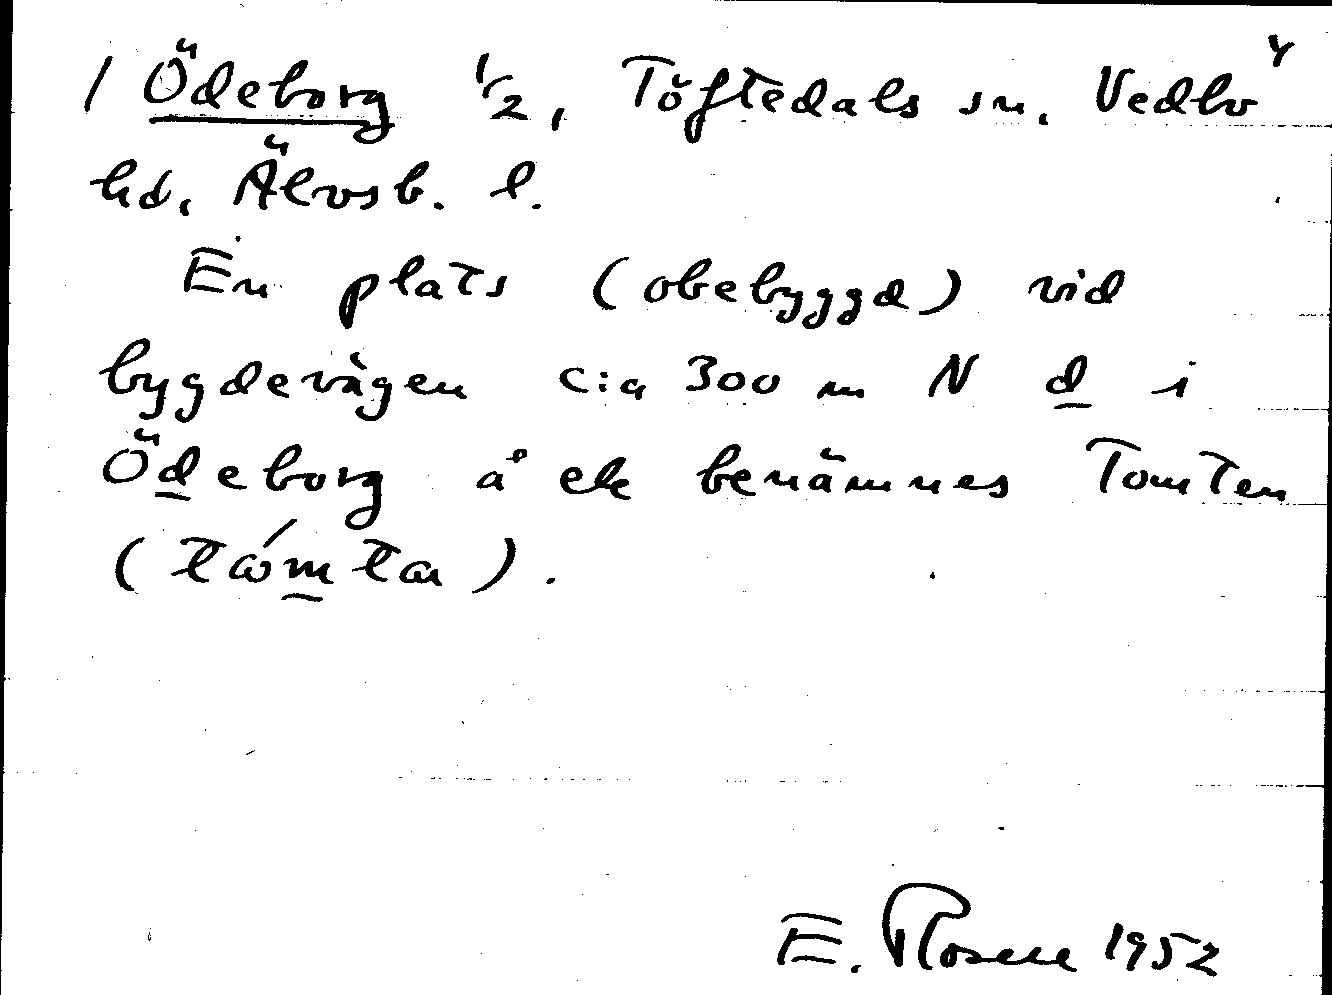 / Ödeborg 1/2, Töftedals sn. Vedbo 4
hd. Älvsb. l.
En plats (obebyggd) vid
bygdevägen c:a 300 m N d i
Ödeborg å ek benämnes Tomten
(tómta).
E. Rosell 1952